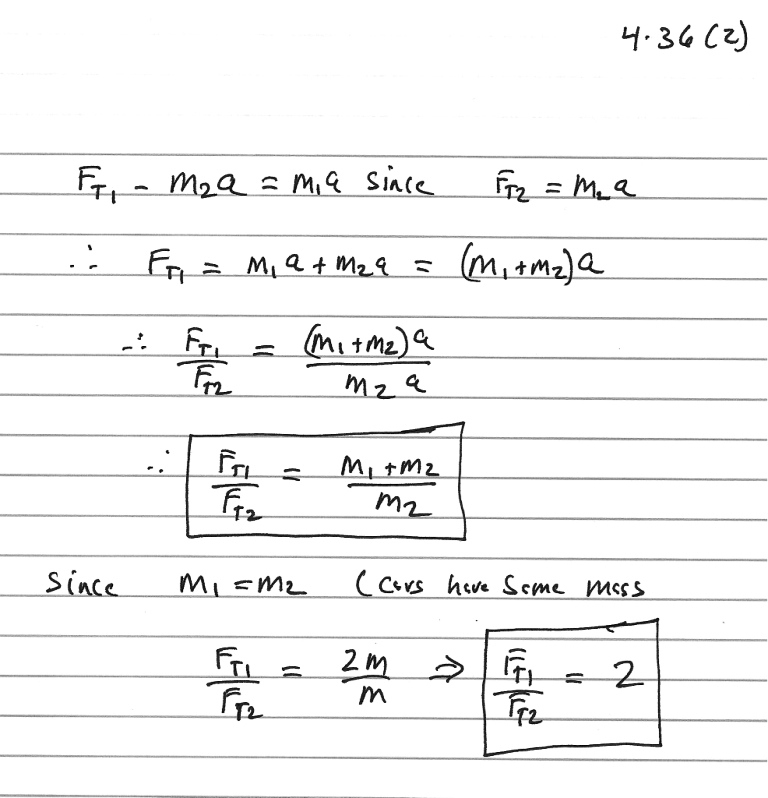 4.36 (2)
F_T1 - m₂a = m₁a since F_T2 = m₂a
∴ F_T1 = m₁a + m₂a = (m₁+m₂)a
∴ F_T1/F_T2 = (m₁+m₂)a/m₂a
∴ F_T1/F_T2 = m₁+m₂/m₂
Since m₁=m₂ (cars have same mass
F_T1/F_T2 = 2m/m ⇒ F_T1/F_T2 = 2